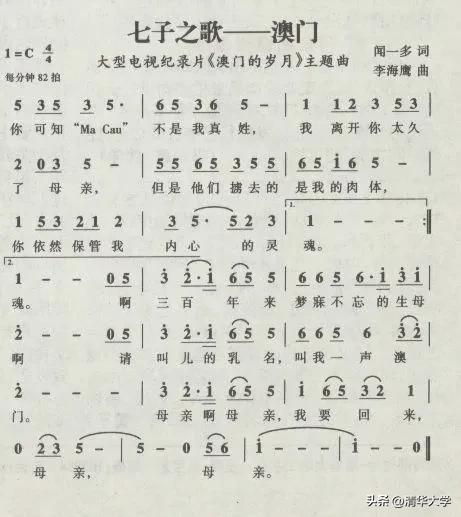 七子之歌——澳门
1=C 4/4
每分钟 82 拍
大型电视纪录片《澳门的岁月》主题曲
闻一多 词
李海鹰 曲
5 35 3 5· | 65 35 6 - | 1 12 3 53 |
你 可知 “Ma Cau” 不是我真 姓, 我 离开你 太久
2 03 5 - | 55 65 355 | 65 i6 5 - |
了 母亲, 但是 他们 掳去的 是我的肉体,
1 53 21 2 | 3 5· 523 | 1. 1 - - :|
你 依然 保管 我 内心 的灵 魂。
2. 1 - - 05 | 3 2·i 65 5 | 665 6·i i |
魂。 啊 三百 年 来 梦寐不忘的生母
2 - - 05 | 3 2·i 65 5 | 666 5 32 |
啊 请 叫儿的乳 名, 叫我一声 澳
2 - - - | 32·i 65 5 | 1 65 32 1 |
门。 母亲啊母 亲, 我 要 回 来,
0 23 5 - | 5 - 0 56 | i - - - | i - - 0 ‖
母 亲, 母 亲。
头条 @清华大学